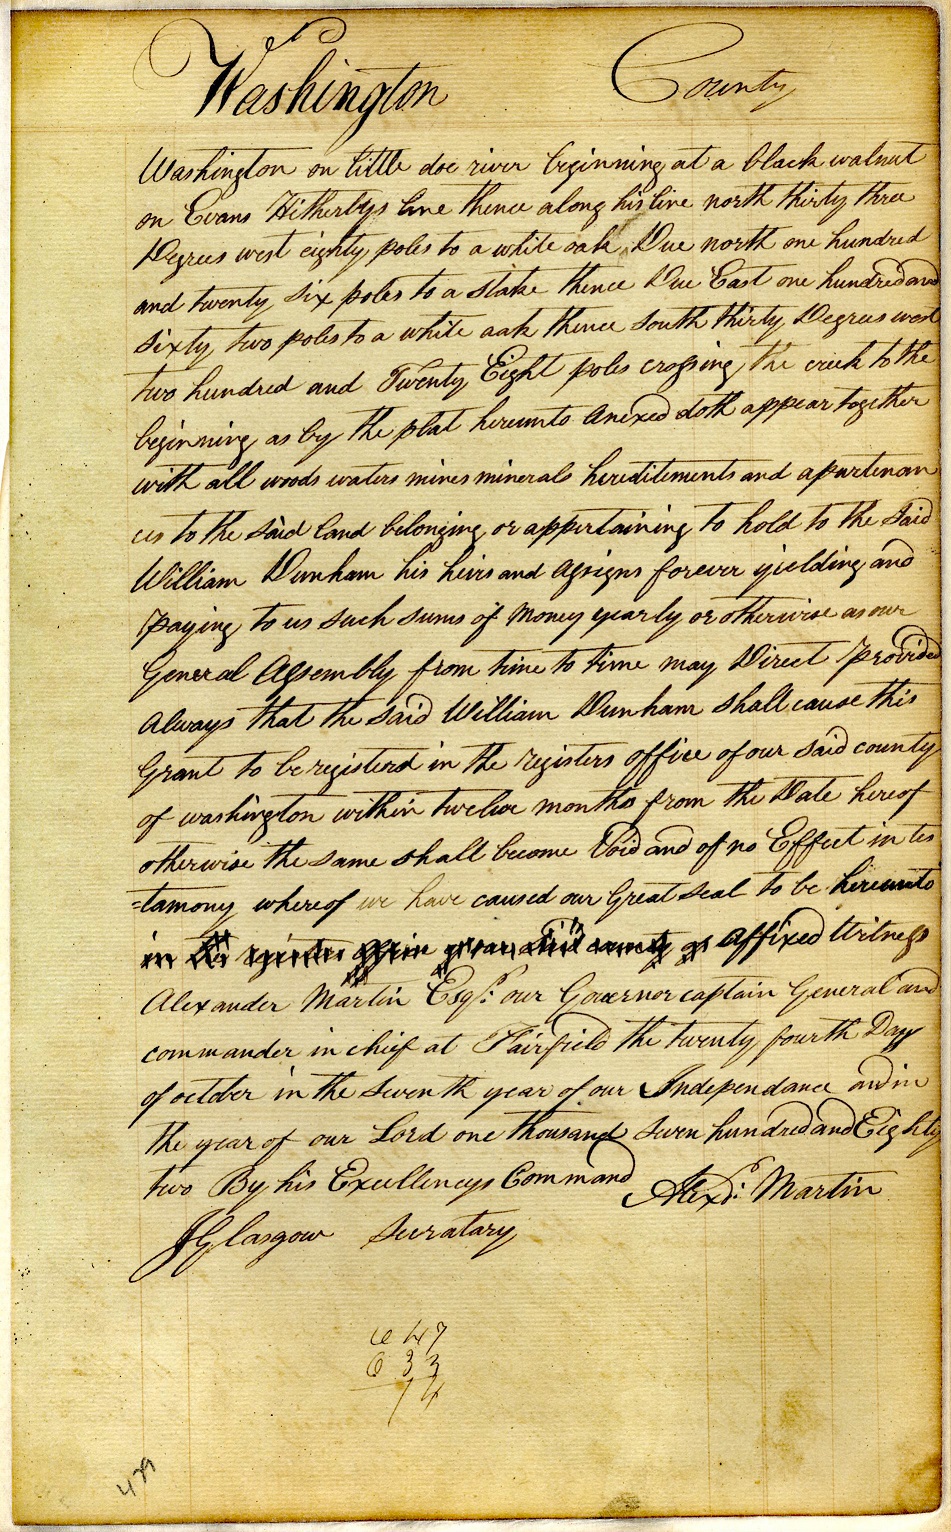 Washington County
Washington on little doe river beginning at a black walnut
on Evans Hitherbys line thence along his line north thirty three
Degrees west eighty poles to a white oak Due north one hundred
and twenty six poles to a stake thence Due East one hundred and
sixty two poles to a white oak thence south thirty Degrees west
two hundred and Twenty Eight poles crossing the creek to the
beginning as by the plat hereunto anexed doth appear together
with all woods waters mines minerals hereditements and apurtenan
ces to the said land belonging or appertaining to hold to the said
William Dunham his heirs and assigns forever yielding and
paying to us such sums of money yearly or otherwise as our
General Assembly from time to time may Direct provided
always that the said William Dunham shall cause this
Grant to be registerd in the registers office of our said county
of washington within twelve months from the Date hereof
otherwise the same shall become Void and of no Effect in tes
=tamony whereof we have caused our Great seal to be hereunto
in the register office of our said county as affixed Witness
Alexander Martin Esqr. our Governor captain General and
commander in chief at Fairfield the twenty fourth Day
of october in the seventh year of our Independance and in
the year of our Lord one thousand seven hundred and Eighty
two By his Excellencys Command Alexdr: Martin
JGlasgow Secratary
647
633
14
479